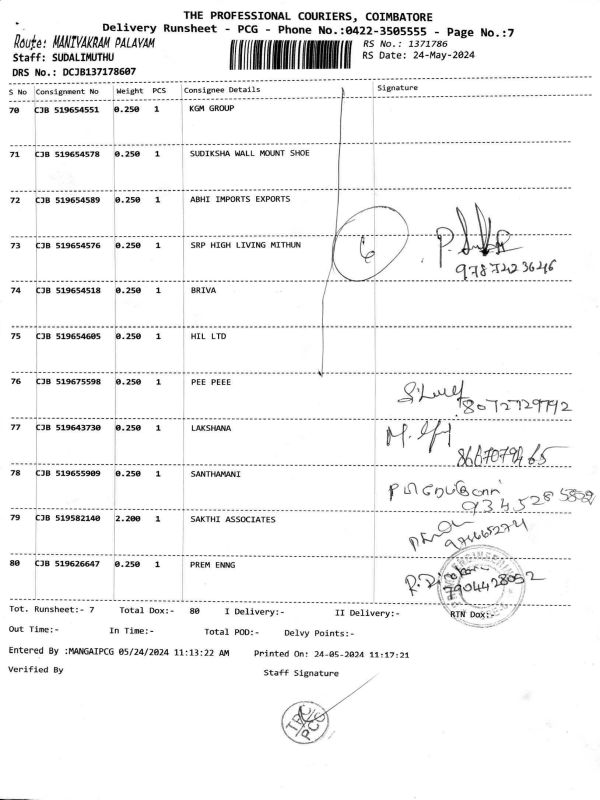 THE PROFESSIONAL COURIERS, COIMBATORE
Delivery Runsheet - PCG - Phone No.:0422-3505555 - Page No.:7
Route: MANIVAKRAM PALAYAM
RS No.: 1371786
Staff: SUDALIMUTHU
RS Date: 24-May-2024
DRS No.: DCJB137178607
S No Consignment No Weight PCS Consignee Details Signature
70 CJB 519654551 0.250 1 KGM GROUP
71 CJB 519654578 0.250 1 SUDIKSHA WALL MOUNT SHOE
72 CJB 519654589 0.250 1 ABHI IMPORTS EXPORTS
73 CJB 519654576 0.250 1 SRP HIGH LIVING MITHUN
6
9787423646
74 CJB 519654518 0.250 1 BRIVA
75 CJB 519654605 0.250 1 HIL LTD
76 CJB 519675598 0.250 1 PEE PEEE
8072729792
77 CJB 519643730 0.250 1 LAKSHANA
78 CJB 519655909 0.250 1 SANTHAMANI
79 CJB 519582140 2.200 1 SAKTHI ASSOCIATES
80 CJB 519626647 0.250 1 PREM ENNG
7904428052
Tot. Runsheet:- 7 Total Dox:- 80 I Delivery:- II Delivery:- RTN Dox:-
Out Time:- In Time:- Total POD:- Delvy Points:-
Entered By :MANGAIPCG 05/24/2024 11:13:22 AM Printed On: 24-05-2024 11:17:21
Verified By Staff Signature